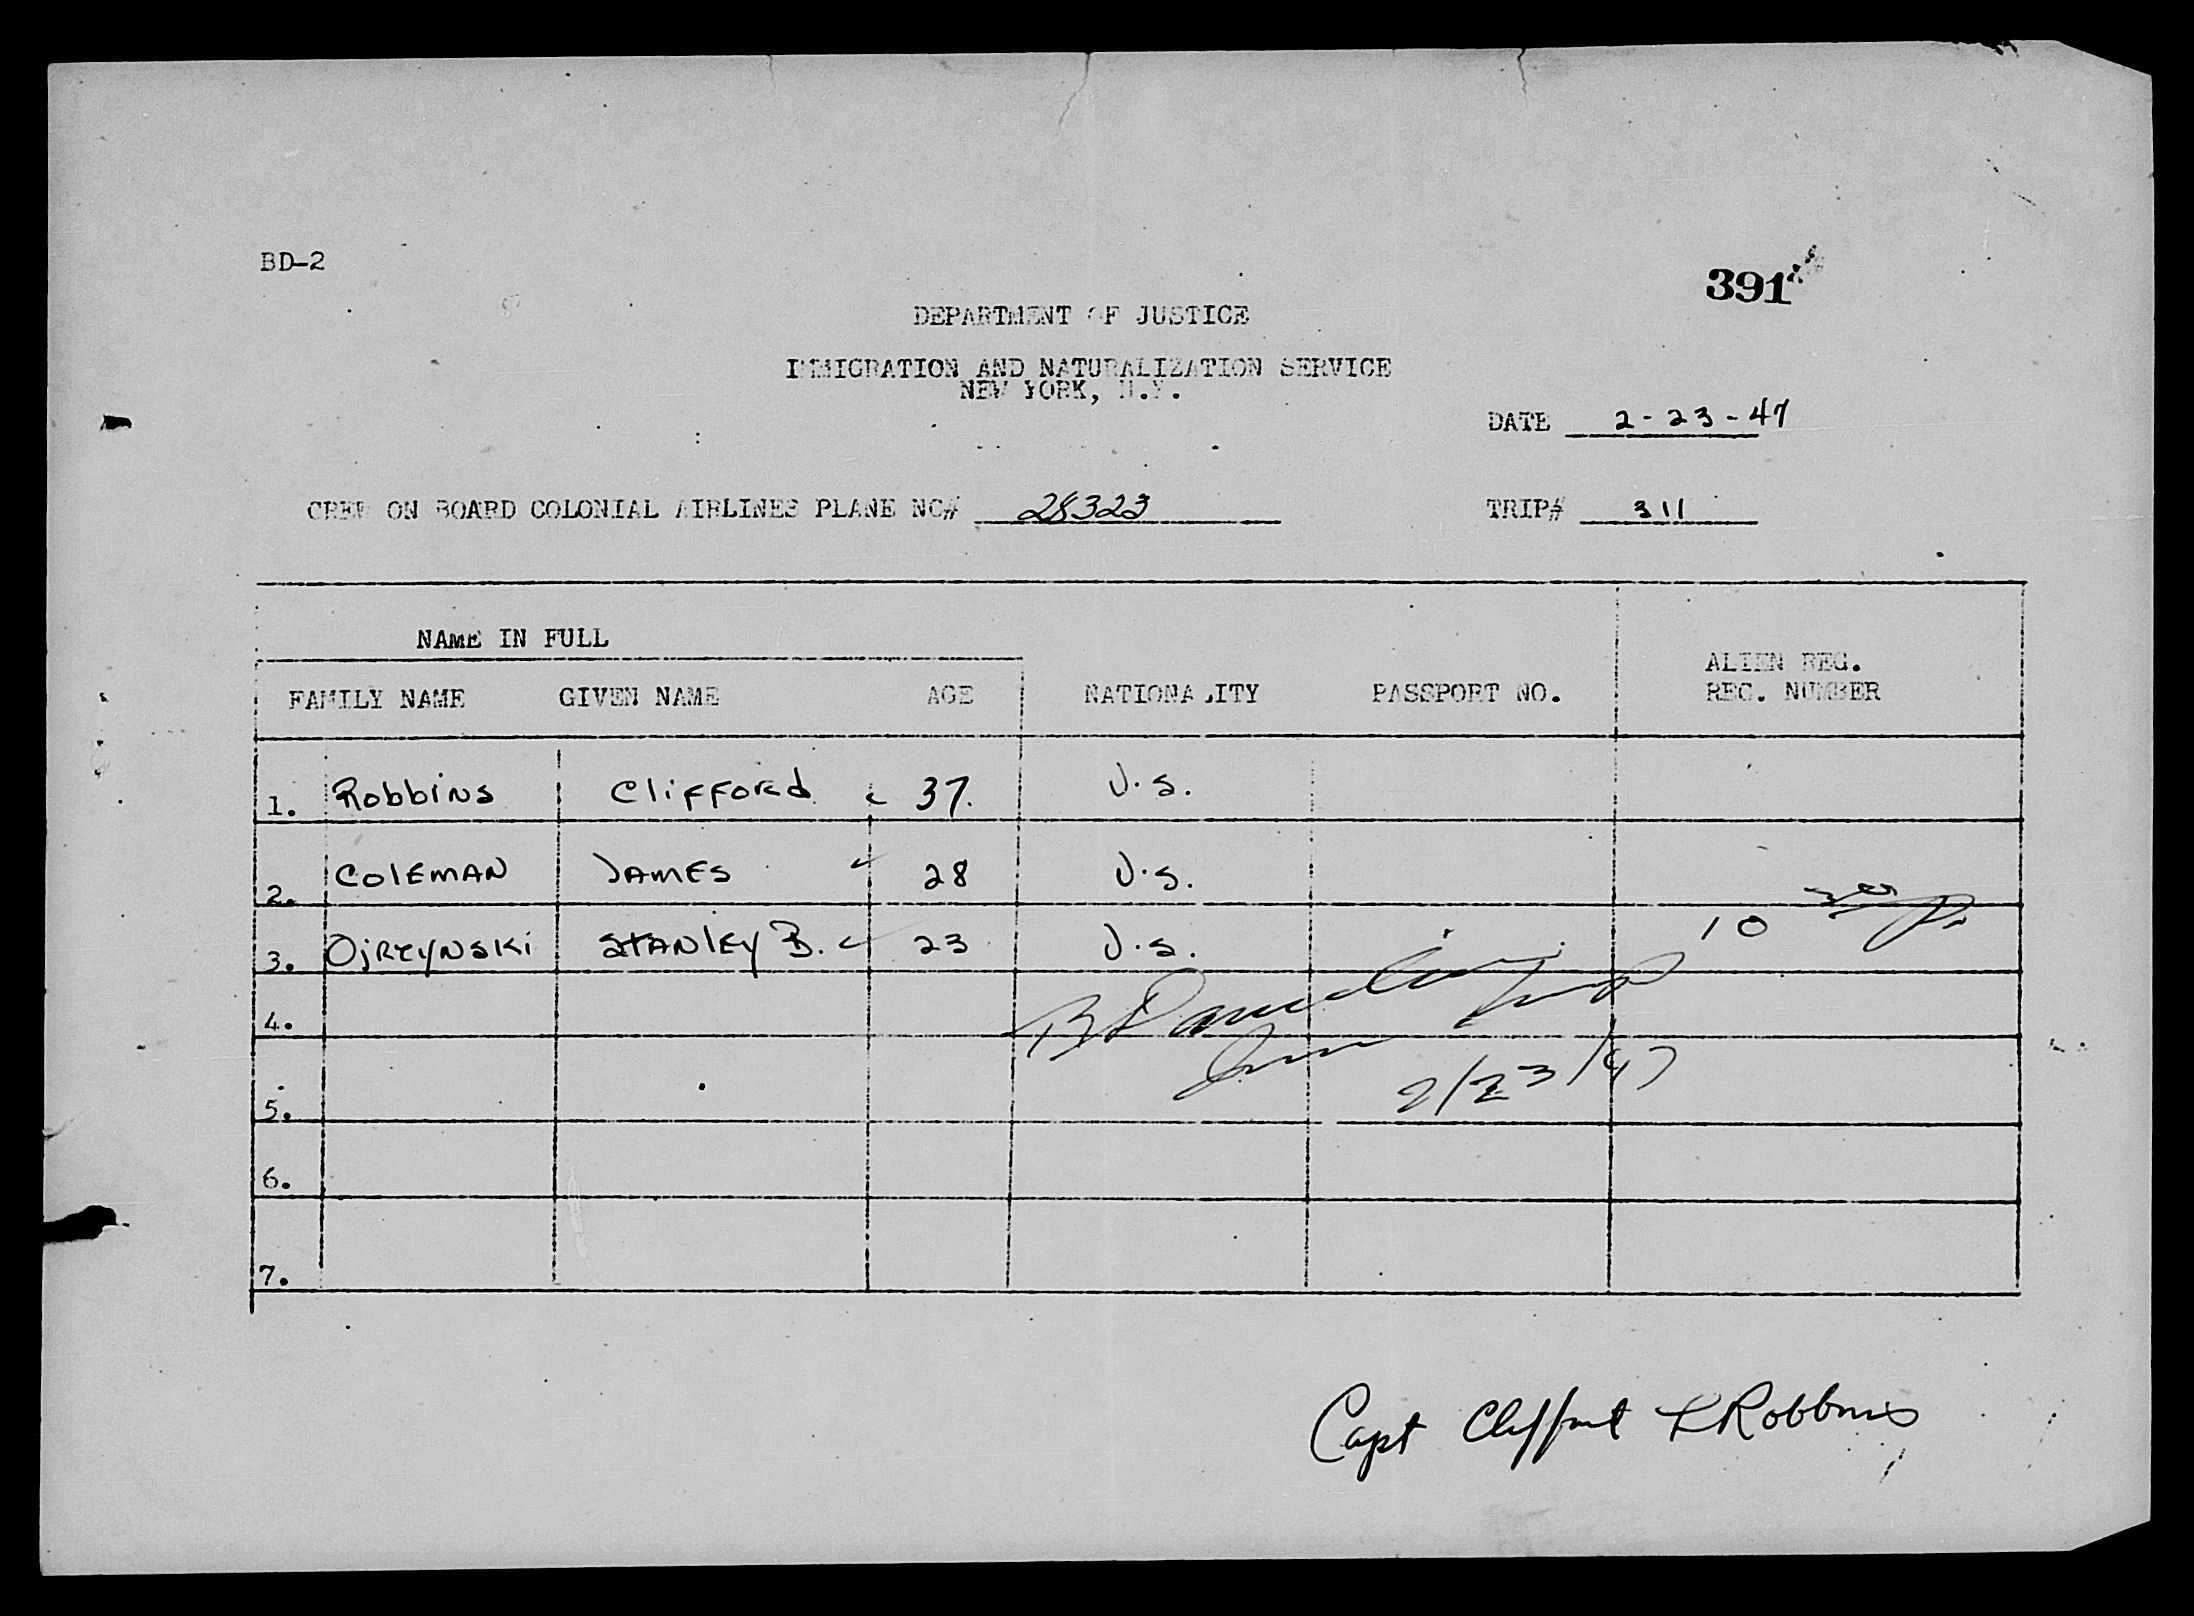 BD-2
391
DEPARTMENT OF JUSTICE
IMMIGRATION AND NATURALIZATION SERVICE
NEW YORK, N.Y.
DATE 2-23-47
CREW ON BOARD COLONIAL AIRLINES PLANE NC# 28323 TRIP# 311
NAME IN FULL
FAMILY NAME GIVEN NAME AGE NATIONALITY PASSPORT NO. ALIEN REG. REC. NUMBER
1. Robbins Clifford 37 U.S.
2. Coleman James 28 U.S.
3. Ojrzynski Stanley B. 23 U.S. 10
4.
2/23/47
5.
6.
7.
Capt Clifford L Robbins